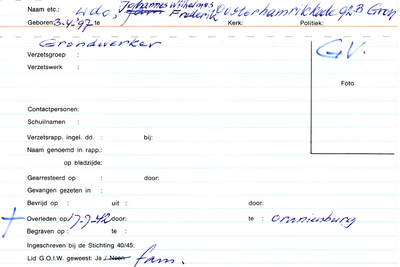 Naam etc.: Udo, Johannes Wilhelmus Frederik Oosterhamrikkade 92B Gron
Geboren: 3.4.'97 te Kerk: Politiek:
Grondwerker
G.V.
Verzetsgroep :
Verzetswerk :
Foto
Contactpersonen:
Schuilnamen :
Verzetsrapp. ingel. dd. : bij:
Naam genoemd in rapp.:
op bladzijde:
Gearresteerd op : door:
Gevangen gezeten in :
Bevrijd op : uit : door:
+ Overleden op: 17-7-42 door: te : Oranienburg
Begraven op : te :
Ingeschreven bij de Stichting 40/45:
Lid G.O.I.W. geweest: Ja / Neen fam.